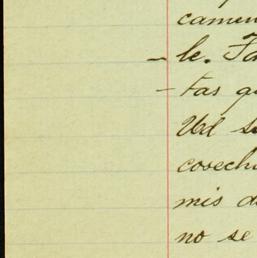 camen
le. Fa
tas q
Ud s
cosech
mis d
no se